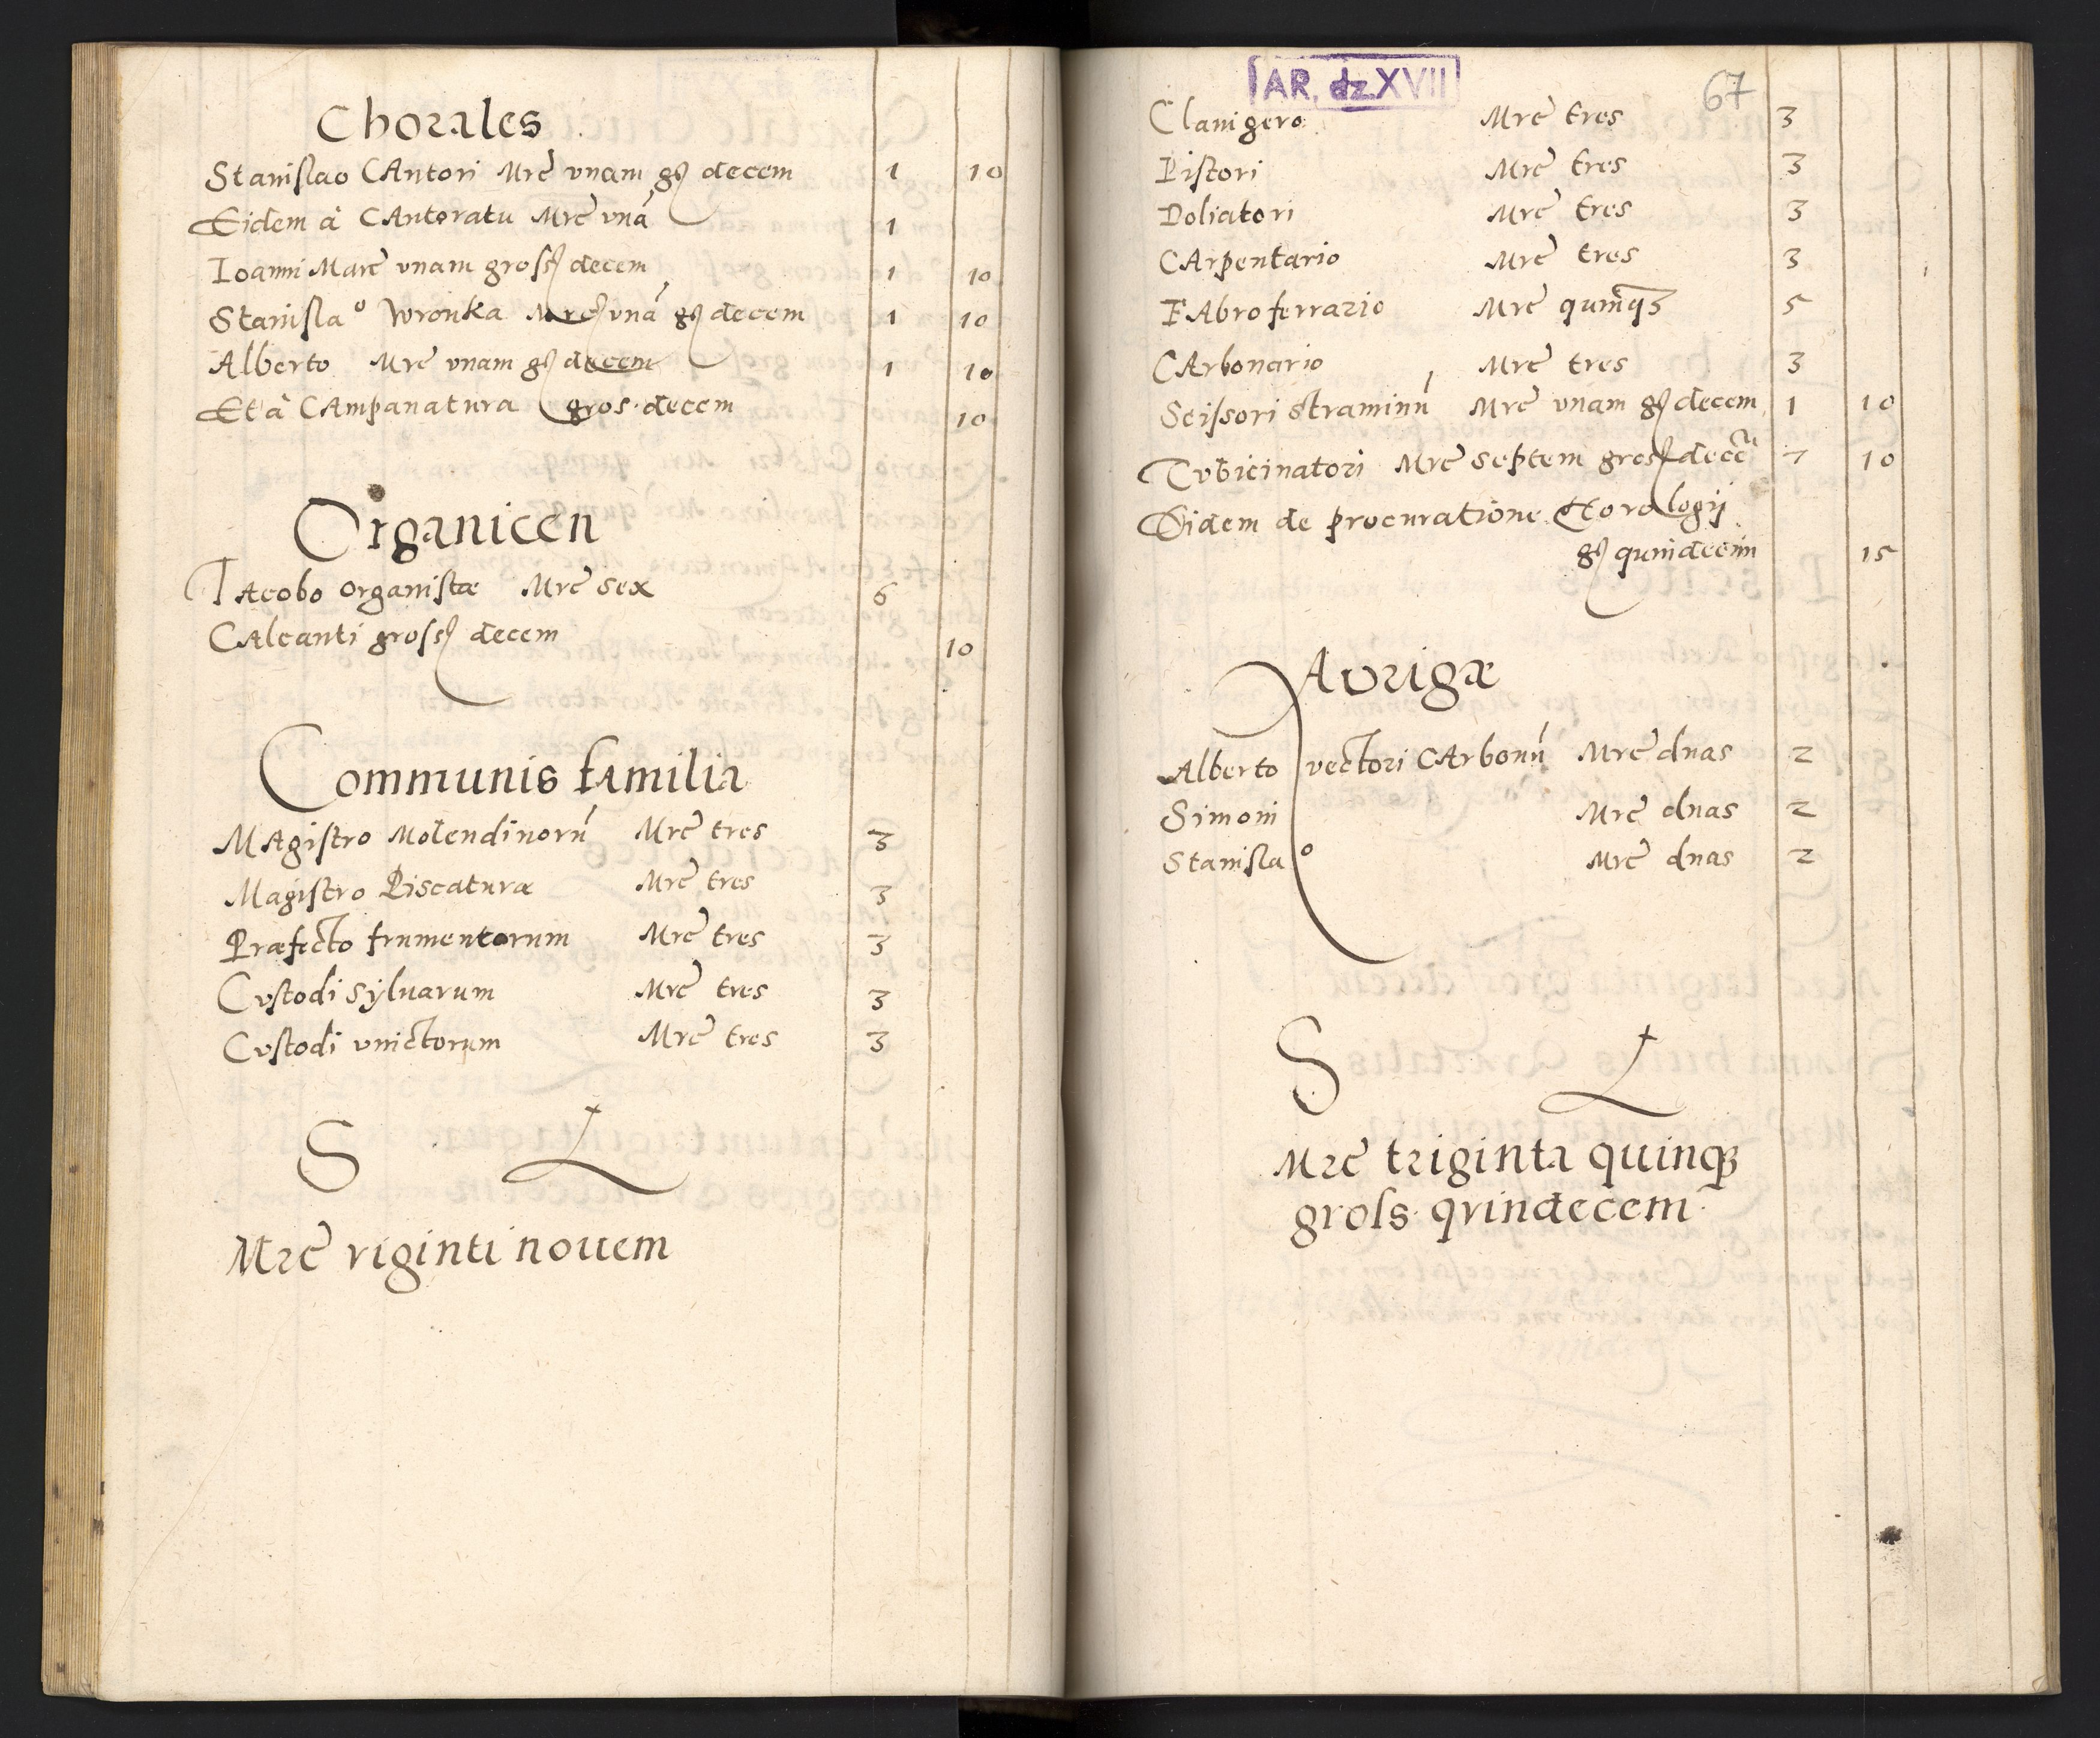 Chorales
Stanislao CAntori Mrc̃ vnam gs̃ decem 1 10
Eidem â CAntoratu Mrc̃ vnã 1
Ioanni Marc̃ vnam gross decem 1 10
Stanislaᵒ Wronka Mrc̃ vnã gs̃ decem 1 10
Alberto Mrc̃ vnam gs̃ decem 1 10
Et â CAmpanatura gros. decem 10
Organicen
IAcobo organistæ Mrc̃ sex 6
CAlcanti gross decem 10
Communis familia
MAgistro Molendinorũ Mrc̃ tres 3
Magistro Piscaturæ Mrc̃ tres 3
Præfecto frumentorum Mrc̃ tres 3
Cvstodi sylvarum Mrc̃ tres 3
Cvstodi vinctorum Mrc̃ tres 3
S L
Mrc̃ viginti nouem
AR. dz XVII
67
Clauigero Mrc̃ tres 3
Pistori Mrc̃ tres 3
Doliatori Mrc̃ tres 3
CArpentario Mrc̃ tres 3
FAbro ferrario Mrc̃ quinqꝫ 5
CArbonario Mrc̃ tres 3
Scissori straminũ Mrc̃ vnam gs̃ decem 1 10
Tvbicinatori Mrc̃ septem gross decẽ 7 10
Eidem de procuratione Horologij
gs̃ quindecim 15
Avrigæ
Alberto vectori CArbonũ Mrc̃ duas 2
Simoni Mrc̃ duas 2
Stanislaᵒ Mrc̃ duas 2
S L
Mrc̃ triginta quinqꝫ
gross. qvindecem